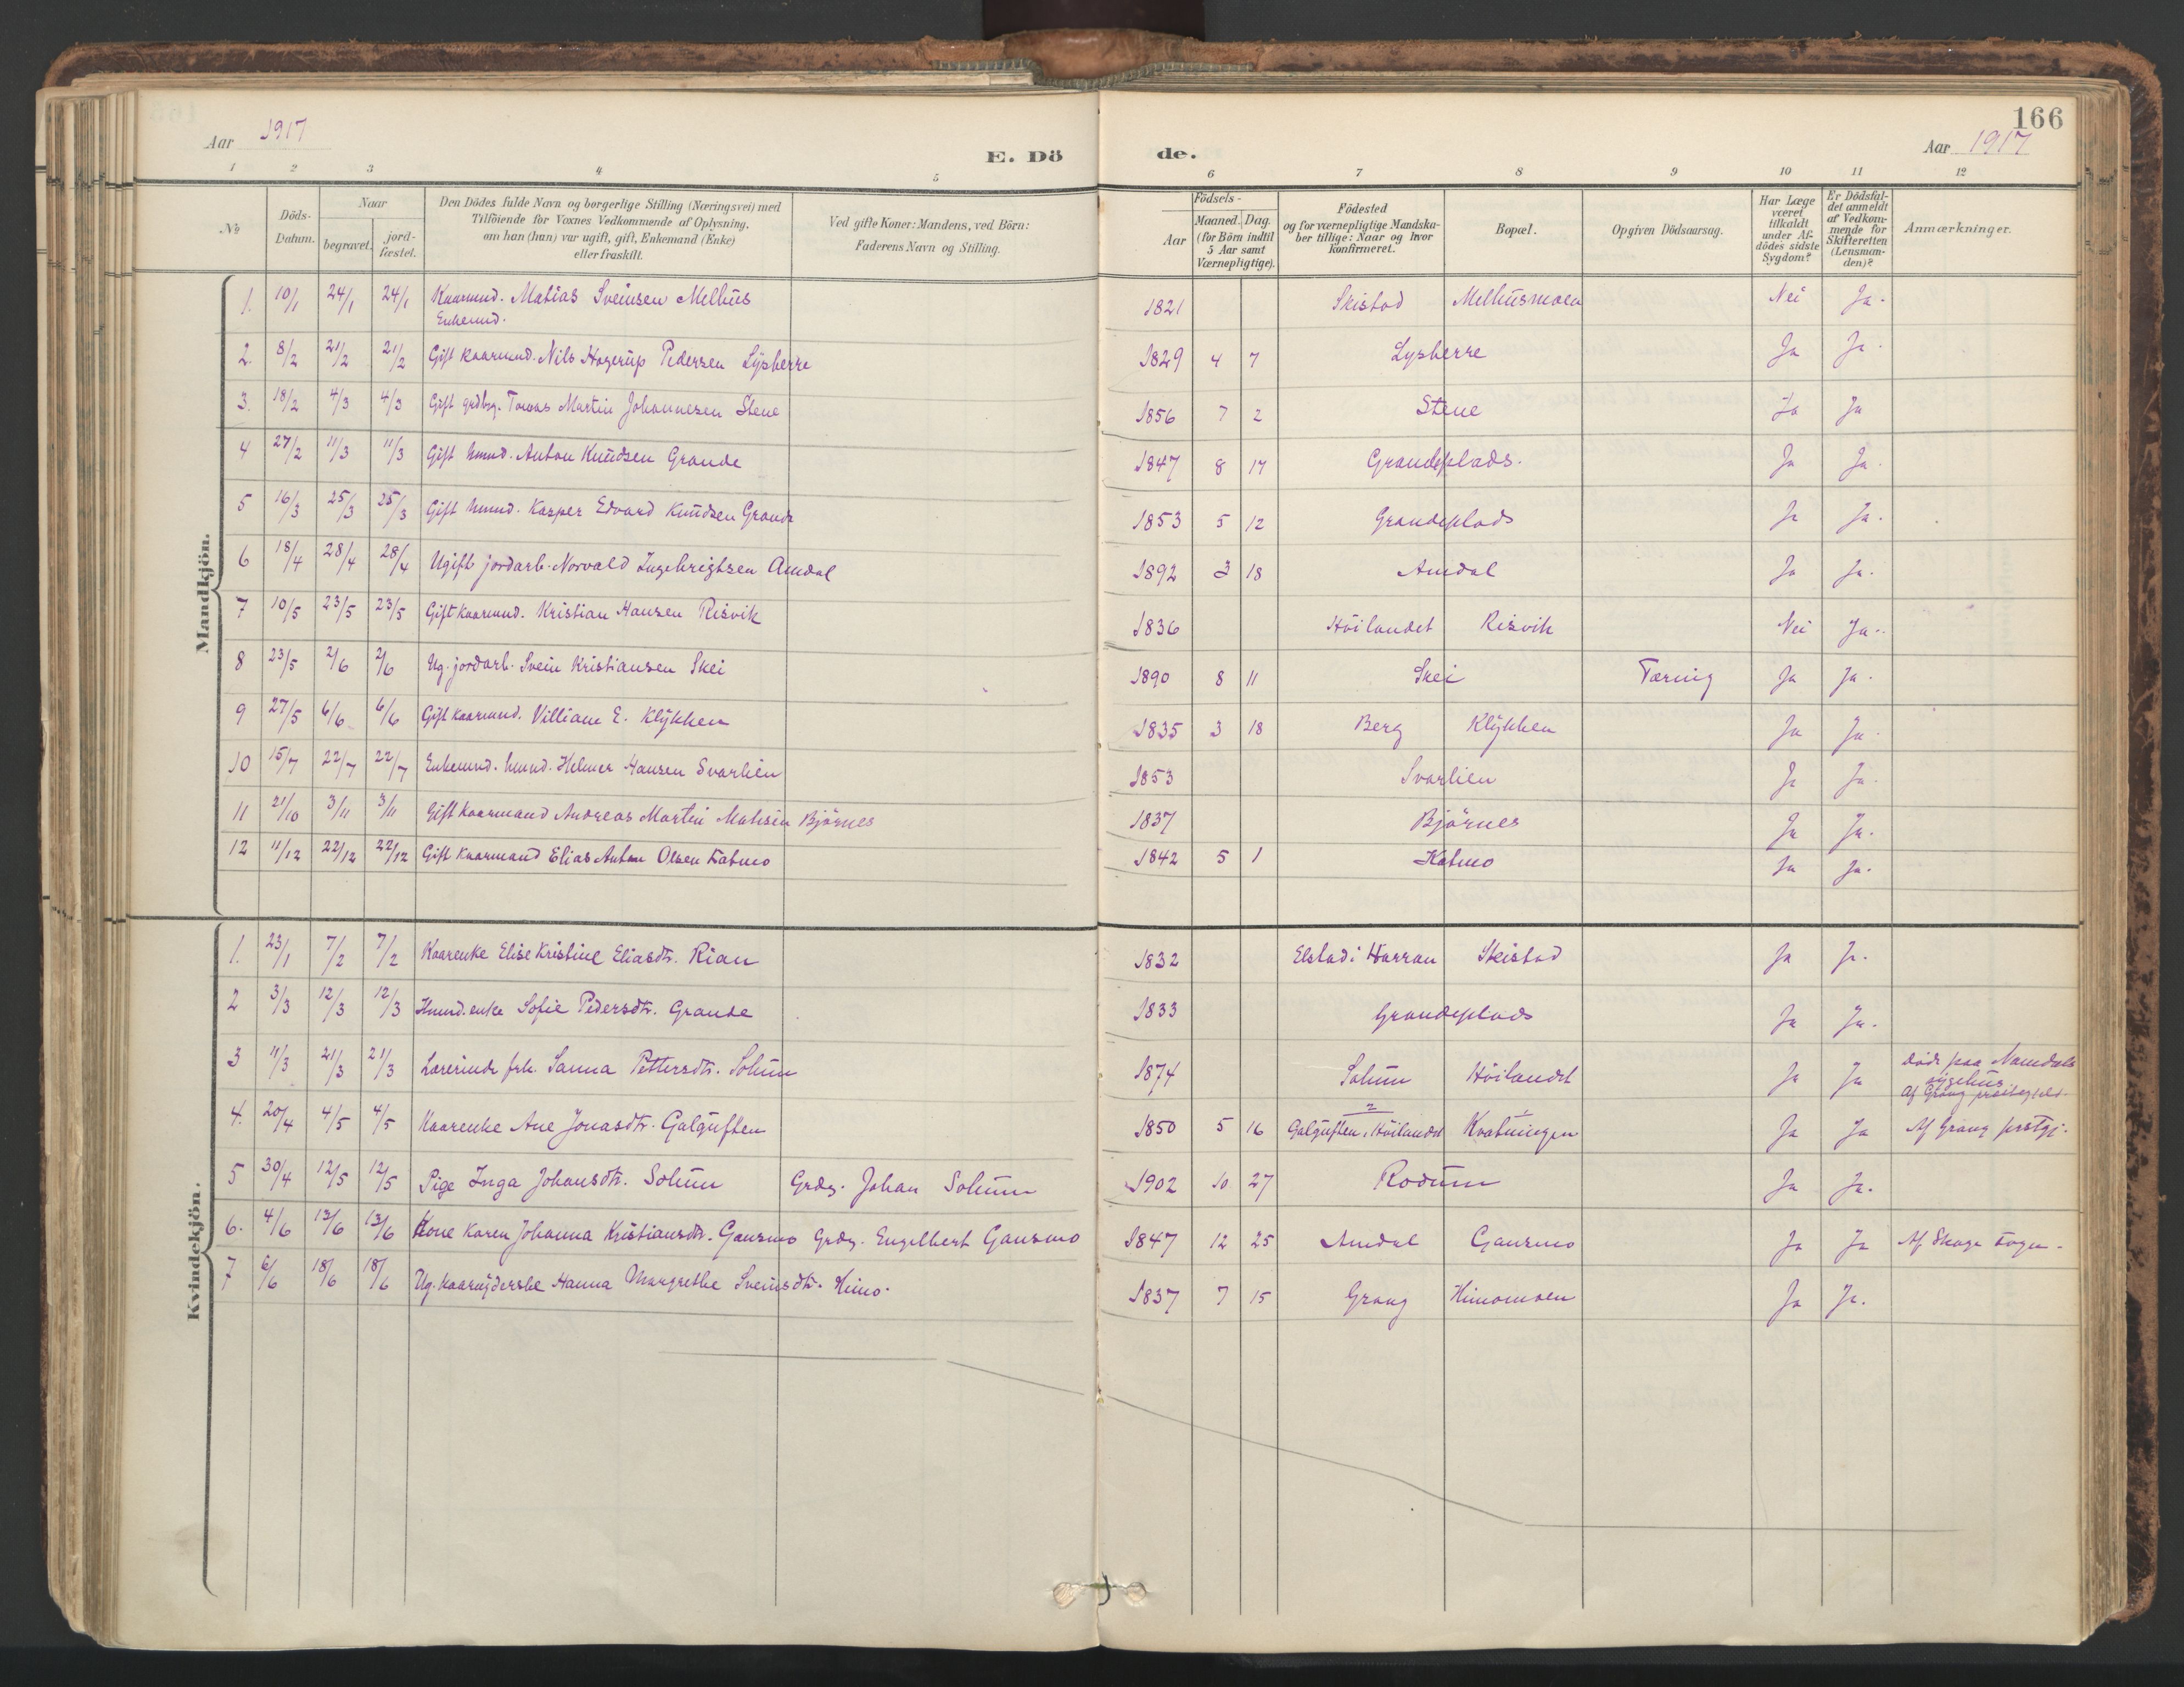 166
Aar 1917
E. Dö de.
Aar 1917
1 2 3 4 5 6 7 8 9 10 11 12
No
Döds-Datum.
Naar
begravet.
jord-fæstet.
Den Dödes fulde Navn og borgerlige Stilling (Næringsvei) med
Tilföiende for Voxnes Vedkommende af Oplysning,
om han (hun) var ugift, gift, Enkemand (Enke)
eller fraskilt.
Ved gifte Koner: Mandens, ved Börn:
Faderens Navn og Stilling.
Födsels-
Aar
Maaned. Dag.
(for Börn indtil
5 Aar samt
Værnepligtige).
Födested
og for værnepligtige Mandska-
ber tillige: Naar og hvor
konfirmeret.
Bopæl.
Opgiven Dödsaarsag.
Har Læge
været
tilkaldt
under Af-
dödes sidste
Sygdom?
Er Dödsfal-
det anmeldt
af Vedkom-
mende for
Skifteretten
(Lensman-
den)?
Anmærkninger.
Mandkjön.
1. 10/1 24/1 24/1 Kaarmd. Matias Sveinsen Melhus 1821 Skistad Melhusmoen Nei Ja.
Enkemd.
2. 8/2 21/2 21/2 Gift kaarmd. Nils Hagerup Pedersen Lysberre 1829 4 7 Lysberre Ja Ja.
3. 18/2 4/3 4/3 Gift grdbrg. Tomas Martin Johannesen Stene 1856 7 2 Stene Ja Ja
4 27/2 11/3 11/3 Gift hmnd. Anton Knudsen Grande 1847 8 17 Grandeplads. Ja Ja.
5 16/3 25/3 25/3 Gift hmnd. Kasper Edvard Knudsen Grande 1853 5 12 Grandeplads Ja Ja.
6 18/4 28/4 28/4 Ugift jordarb. Norvald Ingebrigtsen Amdal 1892 3 18 Amdal Ja Ja.
7 10/5 23/5 23/5 Gift kaarmd. Kristian Hansen Risvik 1836 Höilandet Risvik Nei Ja.
8 23/5 2/6 2/6 Ug. jordarb. Svein Kristiansen Skei 1890 8 11 Skei Tæring Ja Ja.
9 27/5 6/6 6/6 Gift kaarmd. Villiam E. Klykken 1835 3 18 Berg Klykken Ja Ja.
10 15/7 22/7 22/7 Enkemd. hmnd. Helmer Hansen Svarlien 1853 Svarlien Ja Ja.
11 21/10 3/11 3/11 Gift kaarmand Andreas Martin Mathisen Björnes 1837 Björnes Ja Ja.
12 11/12 22/12 22/12 Gift kaarmand Elias Anton Olsen Katmo 1842 5 1 Katmo Ja Ja.
Kvindekjön.
1. 23/1 7/2 7/2 Kaarenke Elise Kristine Eliasdtr. Rian 1832 Elstad i Harran Skistad Ja Ja.
2 3/3 12/3 12/3 Hmnd. enke Sofie Pedersdtr. Grande 1833 Grandeplads Ja Ja.
3 11/3 21/3 21/3 Lærerinde frk. Sanna Pettersdtr. Solum 1874 Solum Höilandet Ja Ja Döde paa Namdals sygehus. Af Grong
4. 20/4 4/5 4/5 Kaarenke Ane Jonasdtr. Galguften 1850 5 16 Galguften, Höilandet Kvatningen Ja Ja Af Grong prstgj.
5 30/4 12/5 12/5 Pige Inga Johansdtr. Solum Grdbr. Johan Solum 1902 10 27 Rodum Ja Ja.
6. 4/6 13/6 13/6 Kone Karen Johanna Kristiansdtr. Gansmo Grdbr. Engelbert Gansmo 1847 12 25 Amdal Gansmo Ja Ja Af Skage sogn.
7 6/6 18/6 18/6 Ug. kaarnyderske Hanna Margrethe Sveinsdtr. Himo. 1837 7 15 Grong Himomoen Ja Ja.